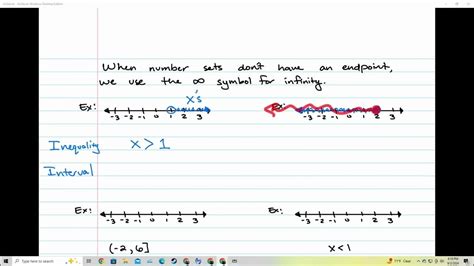 When number sets don't have an endpoint,
we use the ∞ symbol for infinity.
x's
Ex: -3 -2 -1 0 1 2 3 Ex: -3 -2 -1 0 1 2 3
Inequality x > 1
Interval
Ex: -3 -2 -1 0 1 2 3 Ex: -3 -2 -1 0 1 2 3
(-2, 6] x < 1